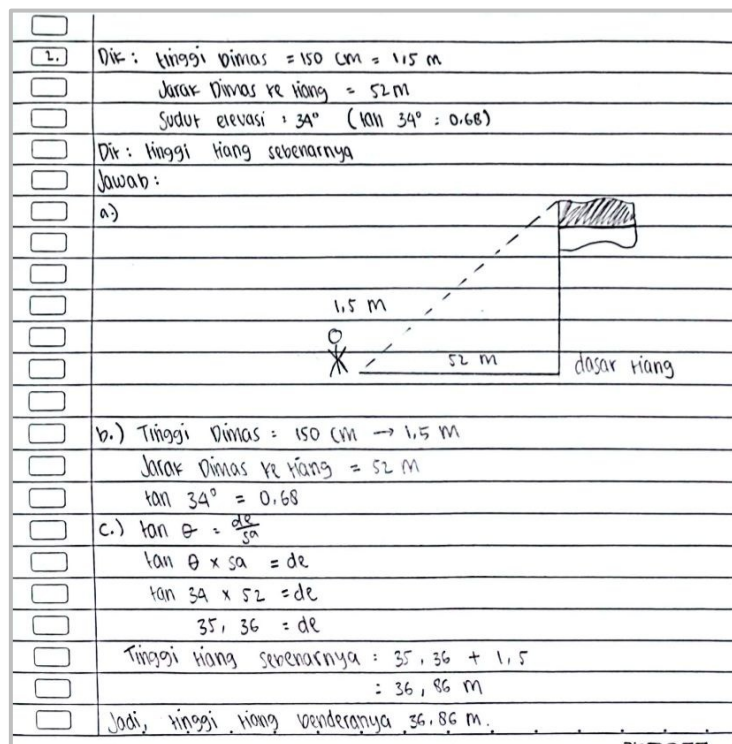 2. Dik : tinggi Dimas = 150 cm = 1,5 m
Jarak Dimas ke tiang = 52 m
Sudut elevasi : 34° (tan 34° : 0.68)
Dit : tinggi tiang sebenarnya
Jawab :
a.)
1,5 m
52 m
dasar tiang
b.) Tinggi Dimas : 150 cm → 1,5 m
Jarak Dimas ke tiang = 52 m
tan 34° = 0,68
c.) tan θ : de/sa
tan θ × sa = de
tan 34 × 52 = de
35, 36 = de
Tinggi tiang sebenarnya : 35, 36 + 1,5
: 36, 86 m
Jadi, tinggi tiang benderanya 36,86 m.